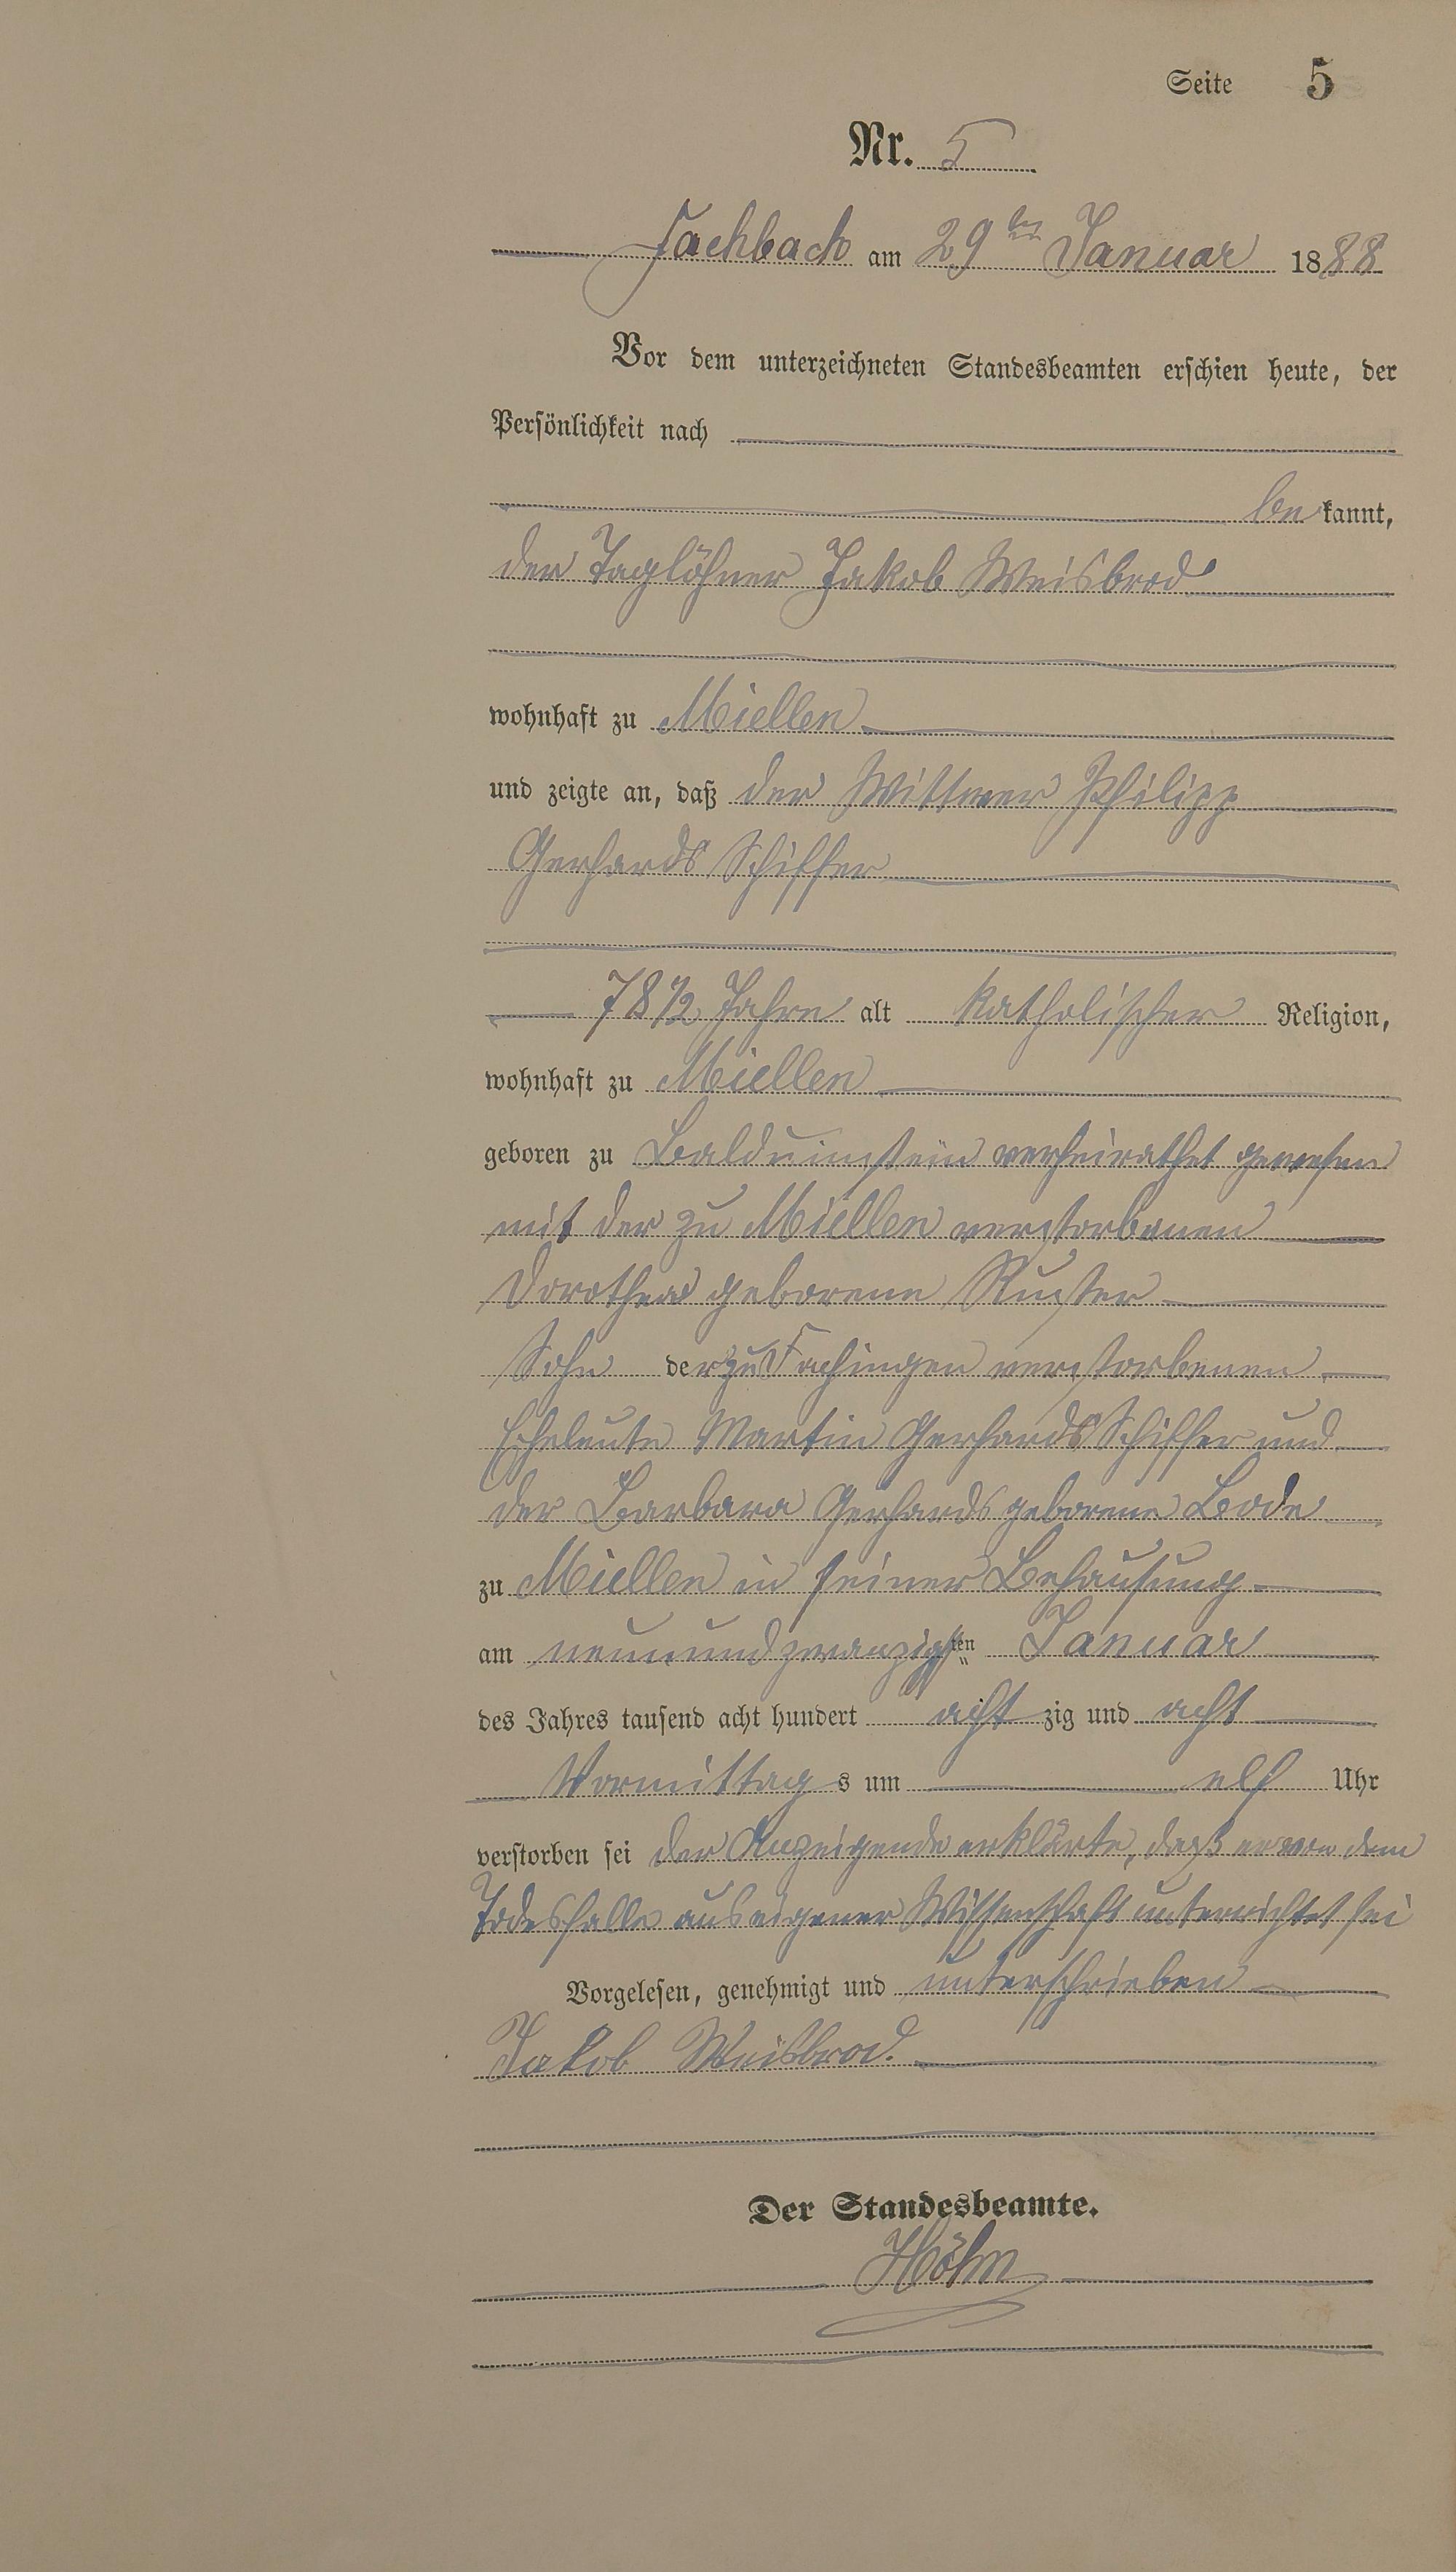 Seite 5
Nr. 5
Fachbach am 29ten Januar 1888
Vor dem unterzeichneten Standesbeamten erschien heute, der
Persönlichkeit nach
be kannt,
der Taglöhner Jakob Weisbrod
wohnhaft zu Miellen
und zeigte an, daß der Wittwer Philipp
Gerhards Schiffer
78 1/2 Jahre alt katholischer Religion,
wohnhaft zu Miellen
geboren zu Balduinstein verheirathet gewesen
mit der zu Miellen verstorbenen
Dorothea geborene
Sohn der zu Fachingen verstorbenen
Eheleute Martin Gerhards Schiffer und
der Barbara Gerhards geborene Bode
zu Miellen in seiner Behausung
am neunundzwanzigsten Januar
des Jahres tausend acht hundert acht zig und acht
Vormittag s um elf Uhr
verstorben sei der Anzeigende erklärte, daß er von dem
Todesfalle aus eigener Wissenschaft unterrichtet sei
Vorgelesen, genehmigt und unterschrieben
Jakob Weisbrod.
Der Standesbeamte.
Höhn